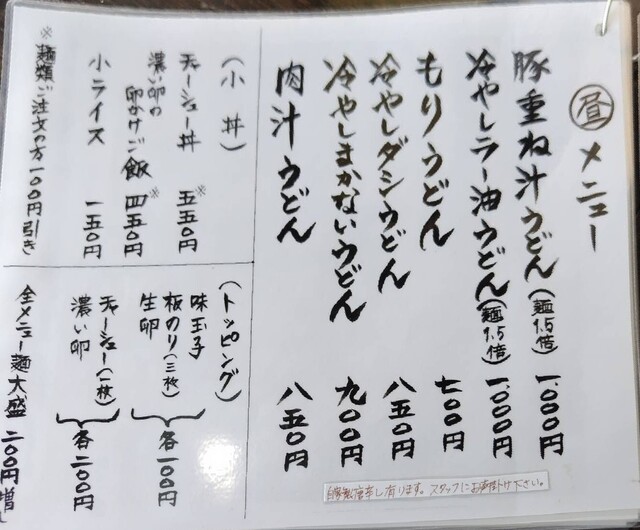 昼メニュー
豚重ね汁うどん(麺1.5倍) 1,000円
冷やしラー油うどん(麺1.5倍) 1,000円
もりうどん 七〇〇円
冷やしダシうどん 八五〇円
冷やしまかないうどん 九〇〇円
肉汁うどん 八五〇円
自家製唐辛し有ります。スタッフにお声掛け下さい。
(小丼)
チャーシュー丼 ※五五〇円
濃い卵の
卵かけご飯 ※四五〇円
小ライス 一五〇円
※麺類ご注文の方一〇〇円引き
(トッピング)
味玉子
板のり(三枚)
生卵
各一〇〇円
チャーシュー(一枚)
濃い卵
各二〇〇円
全メニュー麺大盛 二〇〇円増